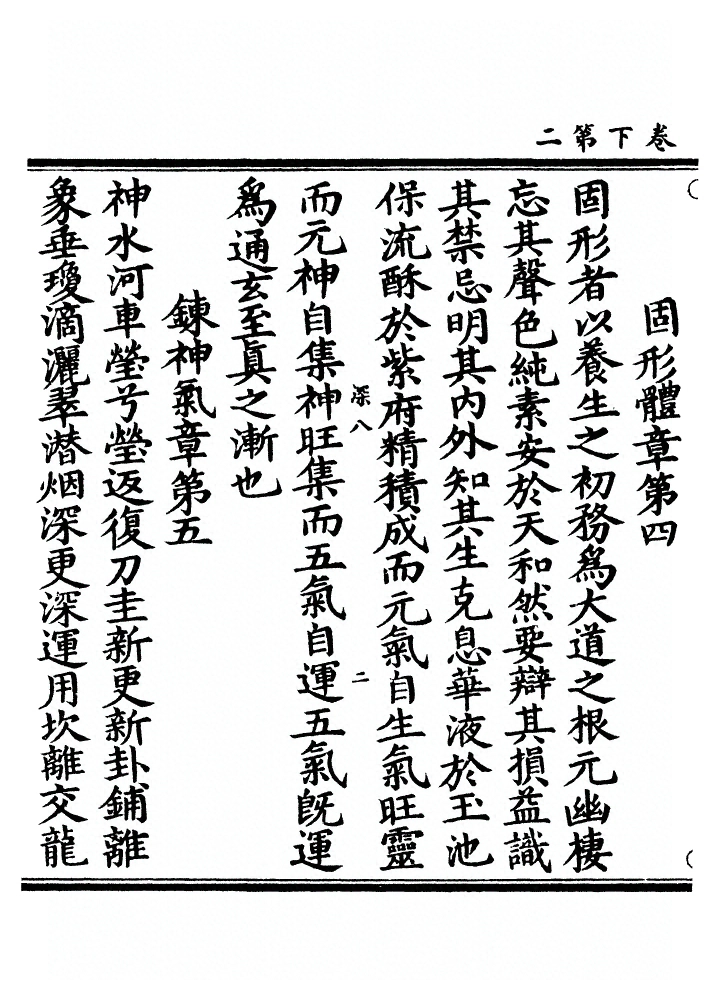 卷下第二
固形體章第四
固形者以養生之初務爲大道之根元幽棲
忘其聲色純素安於天和然要辯其損益識
其禁忌明其內外知其生克息華液於玉池
保流酥於紫府精積成而元氣自生氣旺靈
深八
二
而元神自集神旺集而五氣自運五氣旣運
爲通玄至眞之漸也
鍊神氣章第五
神水河車瑩兮瑩返復刀圭新更新卦鋪離
象垂瓊滴灑翠潜烟深更深運用坎離交龍